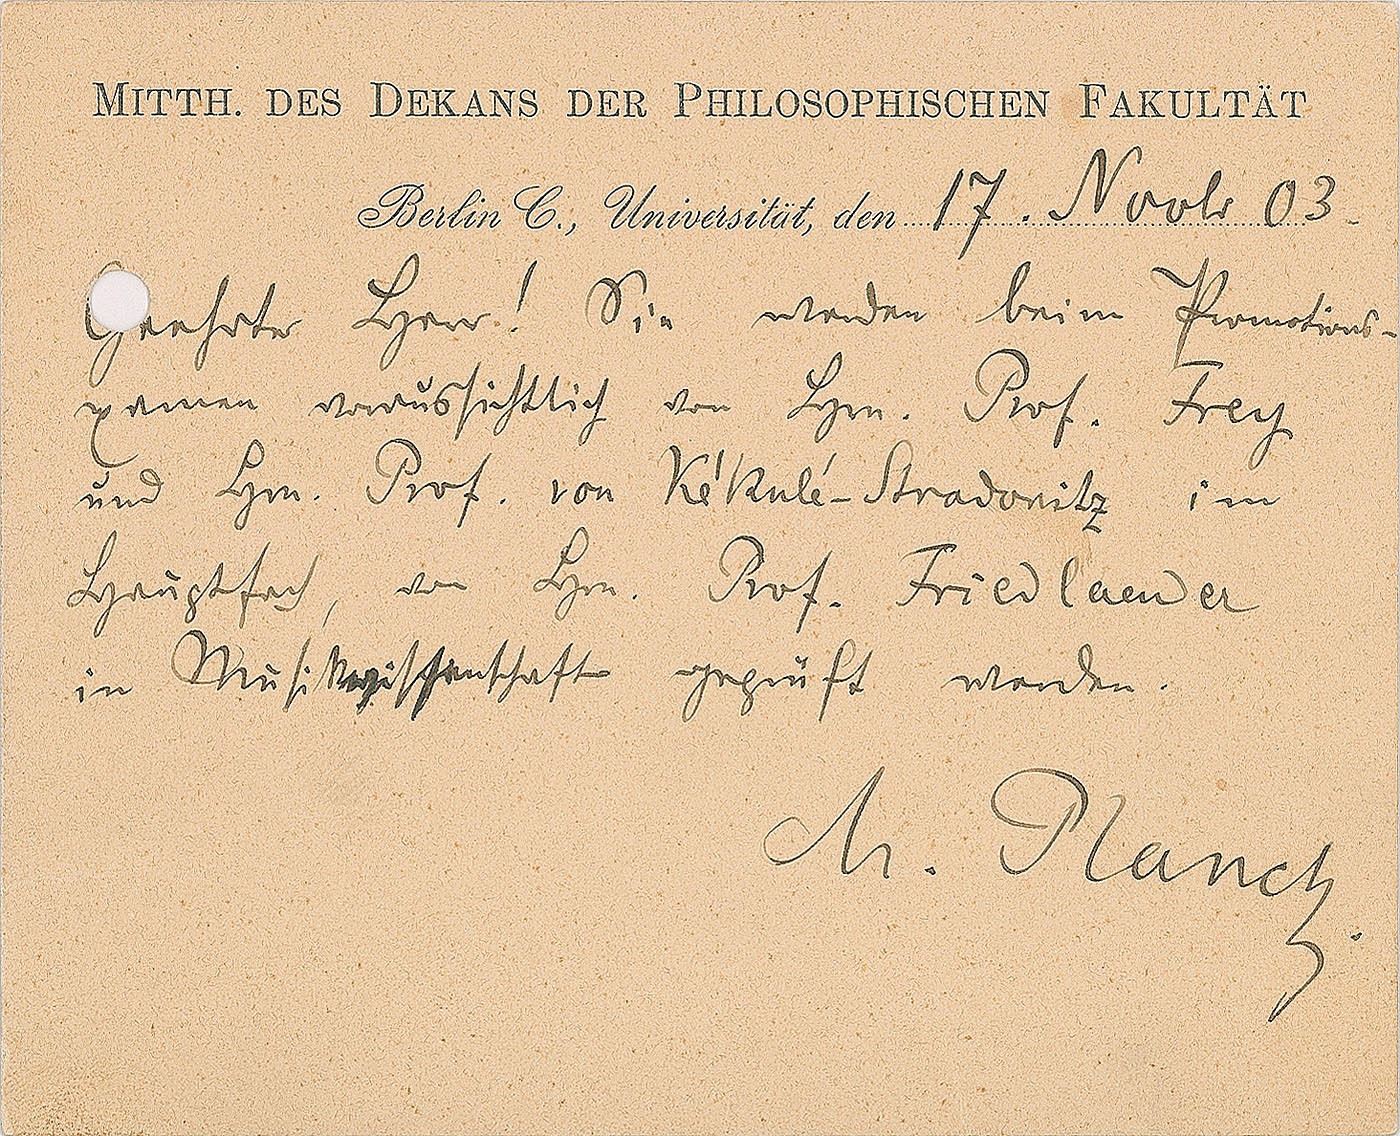 MITTH. DES DEKANS DER PHILOSOPHISCHEN FAKULTÄT
Berlin C., Universität, den 17. Novbr 03.
Geehrter Herr! Sie werden beim Promotions-
examen voraussichtlich von Hrn. Prof. Frey
und Hrn. Prof. von Kékulé-Stradonitz im
Hauptfach, von Hrn. Prof. Friedlaender
in Musikwissenschaft geprüft werden.
M. Planck.